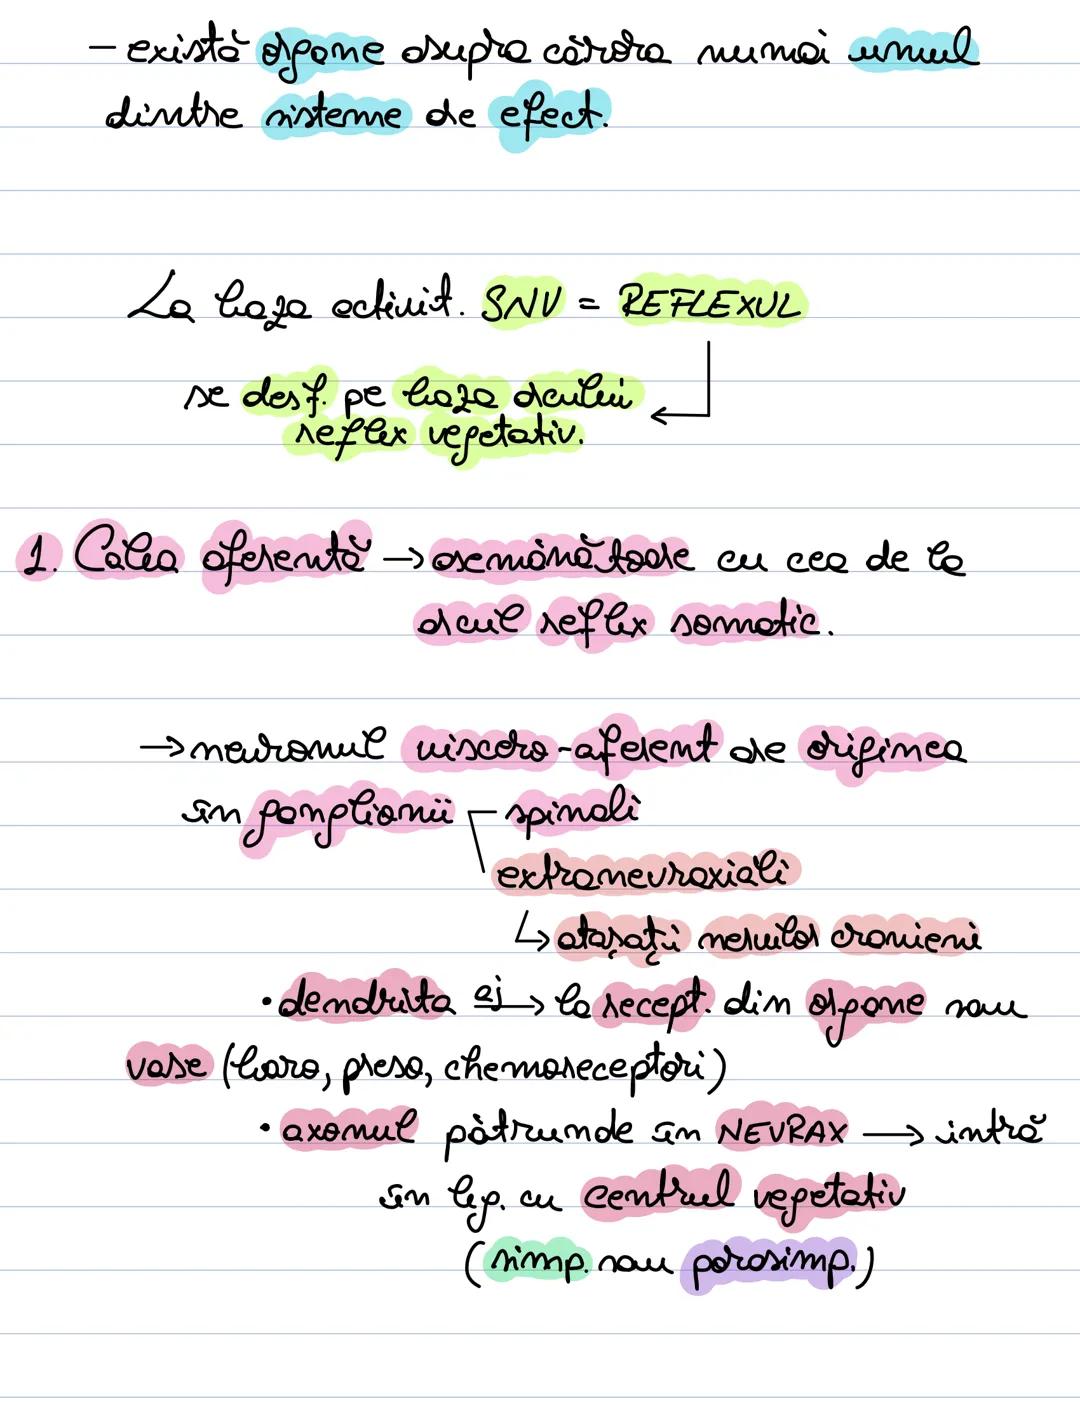 - există organe asupra cărora numai unul
dintre sisteme are efect.
La baza activit. SNV = REFLEXUL
se desf. pe baza arcului
reflex vegetativ.
1. Calea aferentă → asemănătoare cu cea de la
arcul reflex somatic.
→ neuronul viscero-aferent are originea
în ganglionii spinali
extranevraxiali
↳ atașați nervilor cranieni
• dendrita aj → la recept. din organe sau
vase (baro, preso, chemoreceptori)
• axonul pătrunde în NEVRAX → intră
în leg. cu centrul vegetativ
(simp. sau parasimp.)